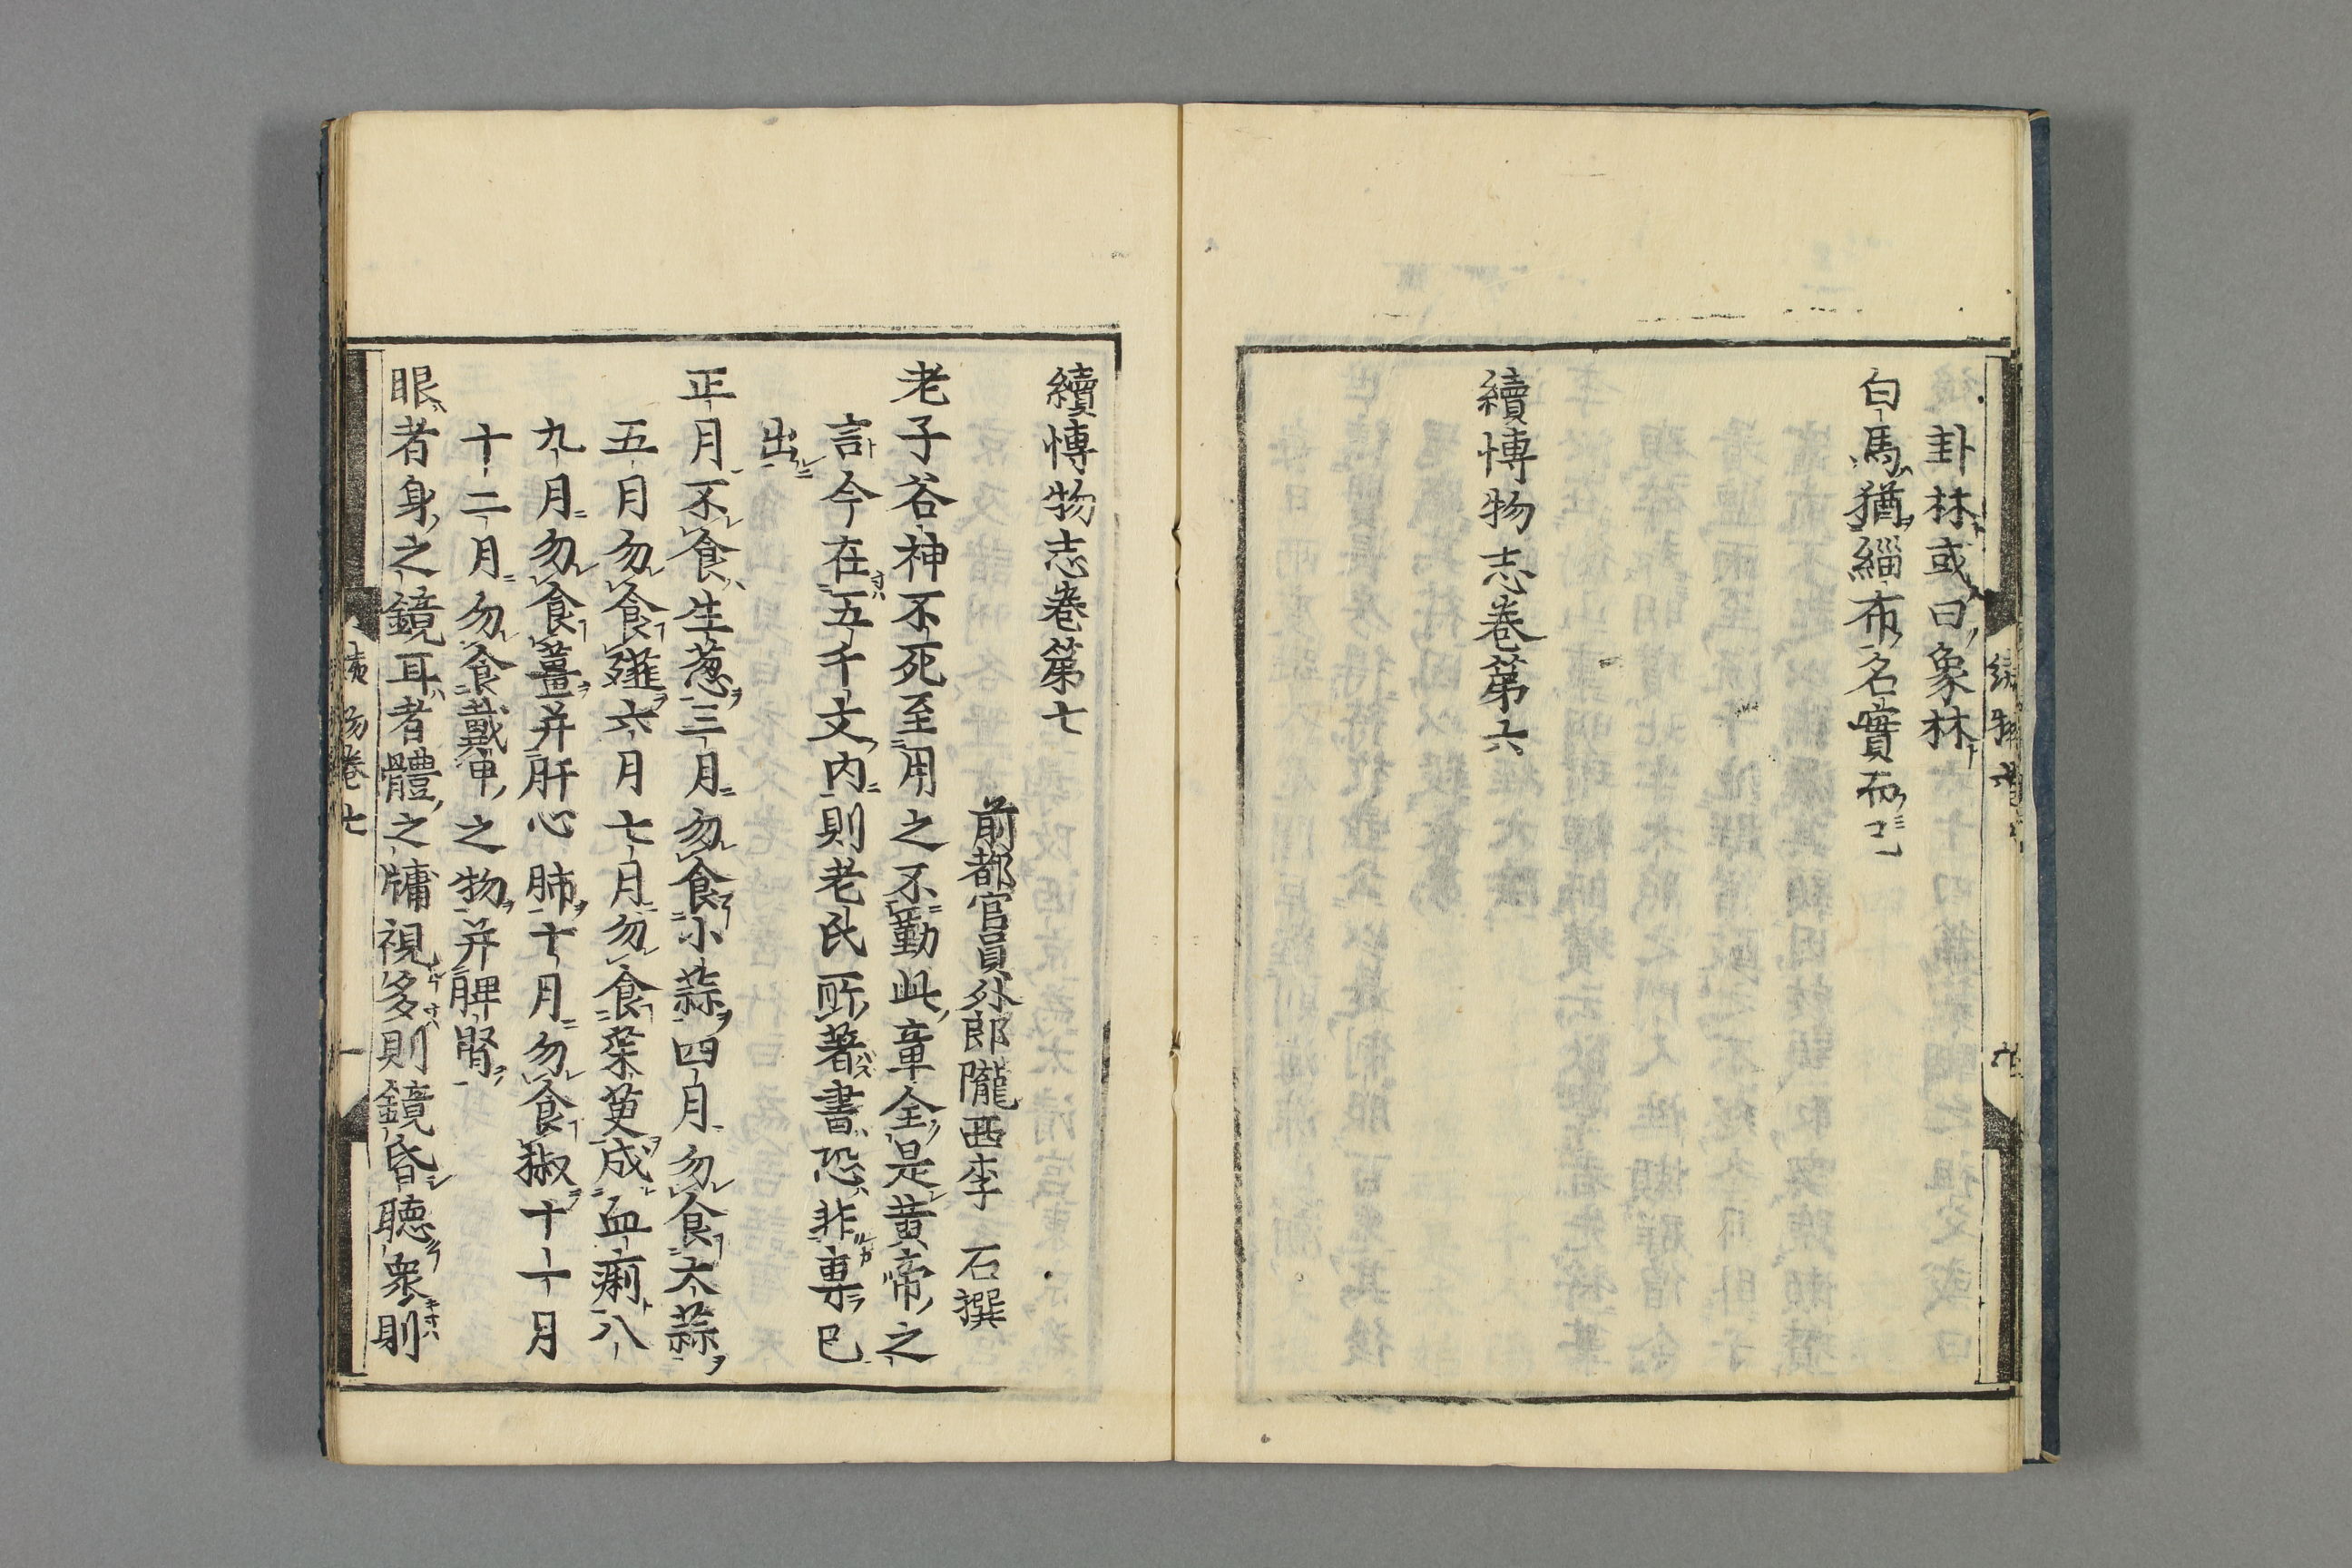 卦林或曰象林
白馬猶緇布名實而已
續博物志卷第六
續博物志卷第七
前都官員外郎隴西李 石撰
老子谷神不死至用之不勤此章全是黄帝之
言今在五千文内則老氏所著書恐非專已
出
正月不食生葱三月勿食小蒜四月勿食大蒜
五月勿食韮六月七月勿食茱萸成血痢八
九月勿食薑并肝心肺十月勿食椒十一月
十二月勿食戴甲之物并脾腎
眼者身之鏡耳者體之牖視多則鏡昏聴衆則
物卷七
一